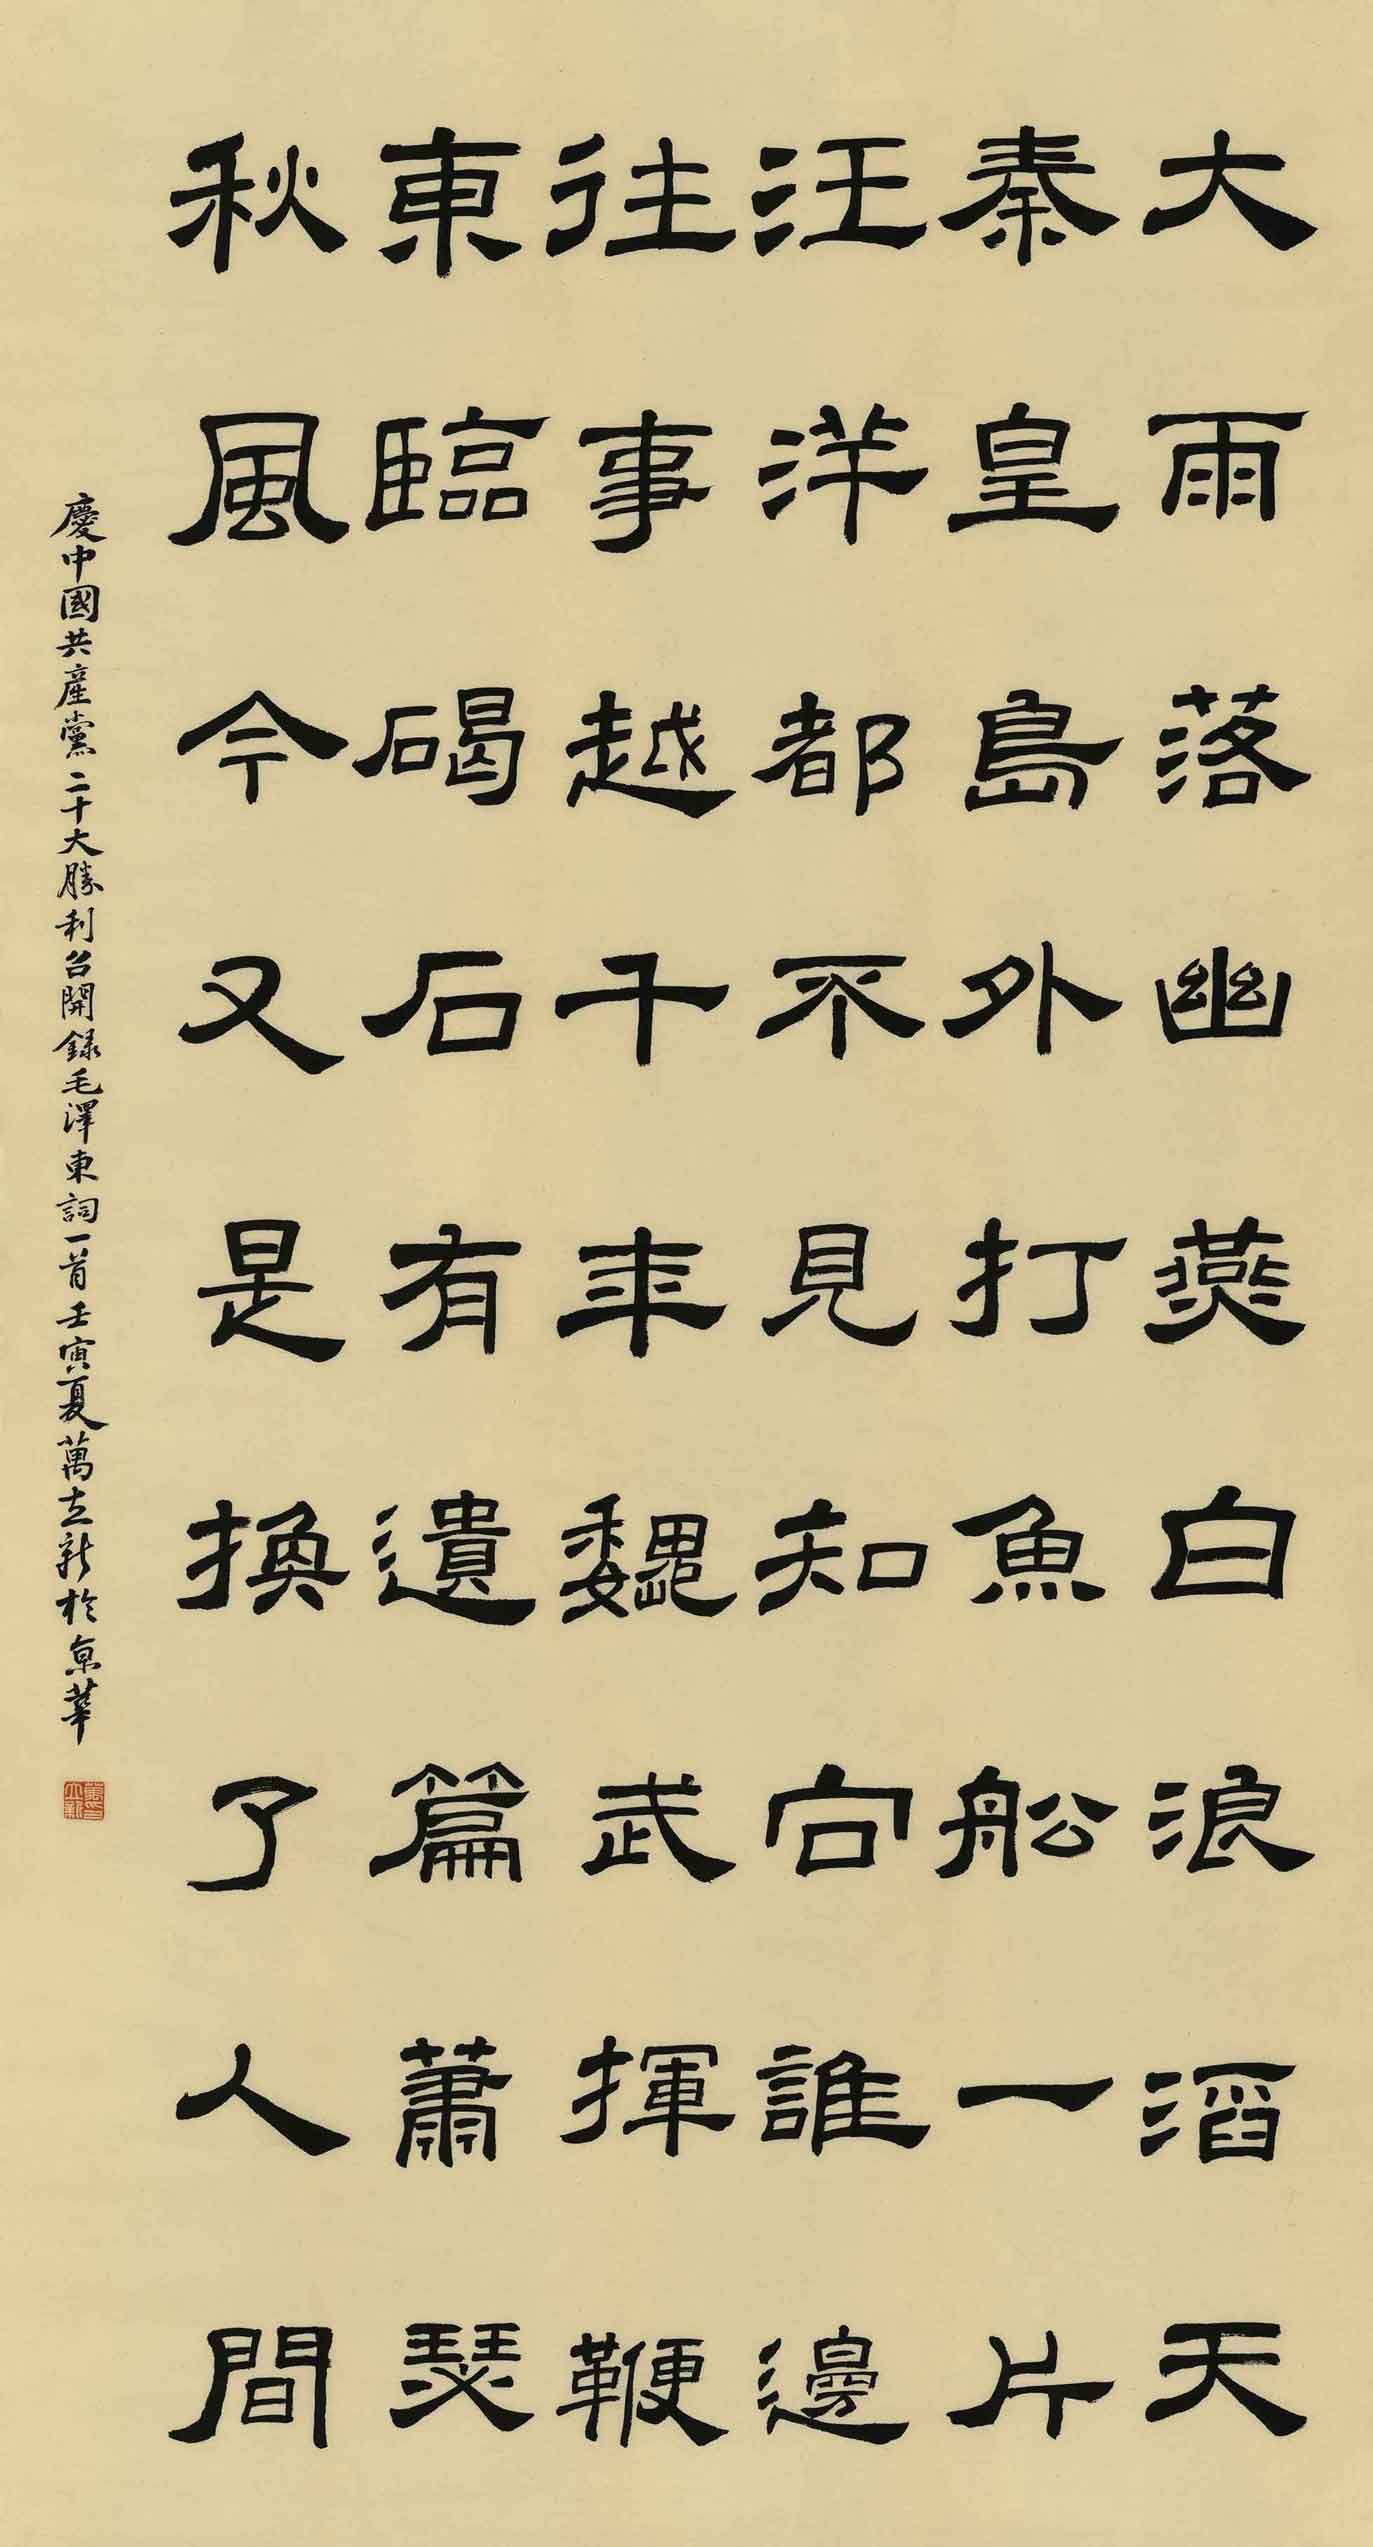 大雨落幽燕白浪滔天
秦皇島外打魚船一片
汪洋都不見知向誰邊
往事越千年魏武揮鞭
東臨碣石有遺篇蕭瑟
秋風今又是換了人間
慶中國共産黨二十大勝利召開錄毛澤東詞一首壬寅夏萬立新於京華